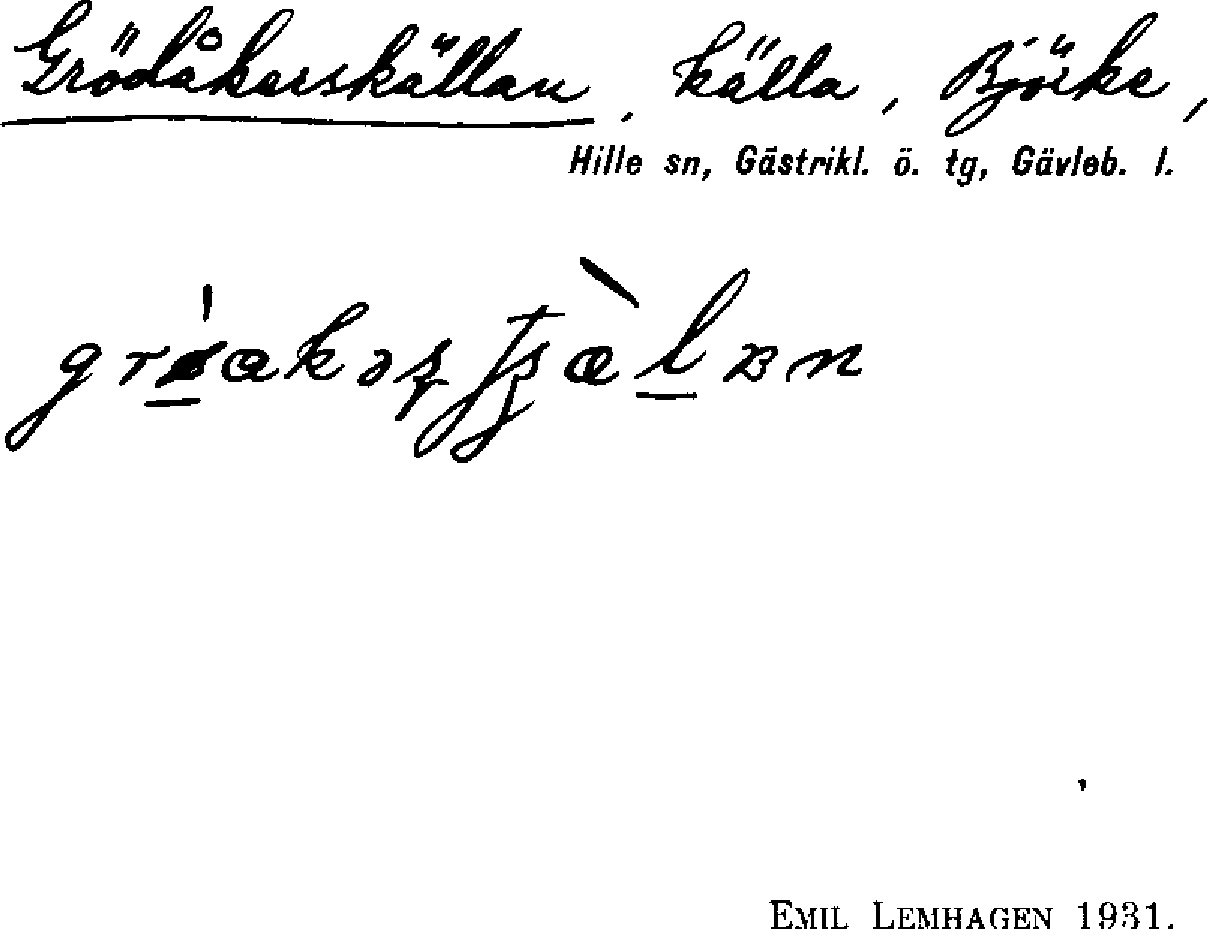 Grödåkerskällan, källa, Björke,
Hille sn, Gästrikl. ö. tg, Gävleb. l.
EMIL LEMHAGEN 1931.